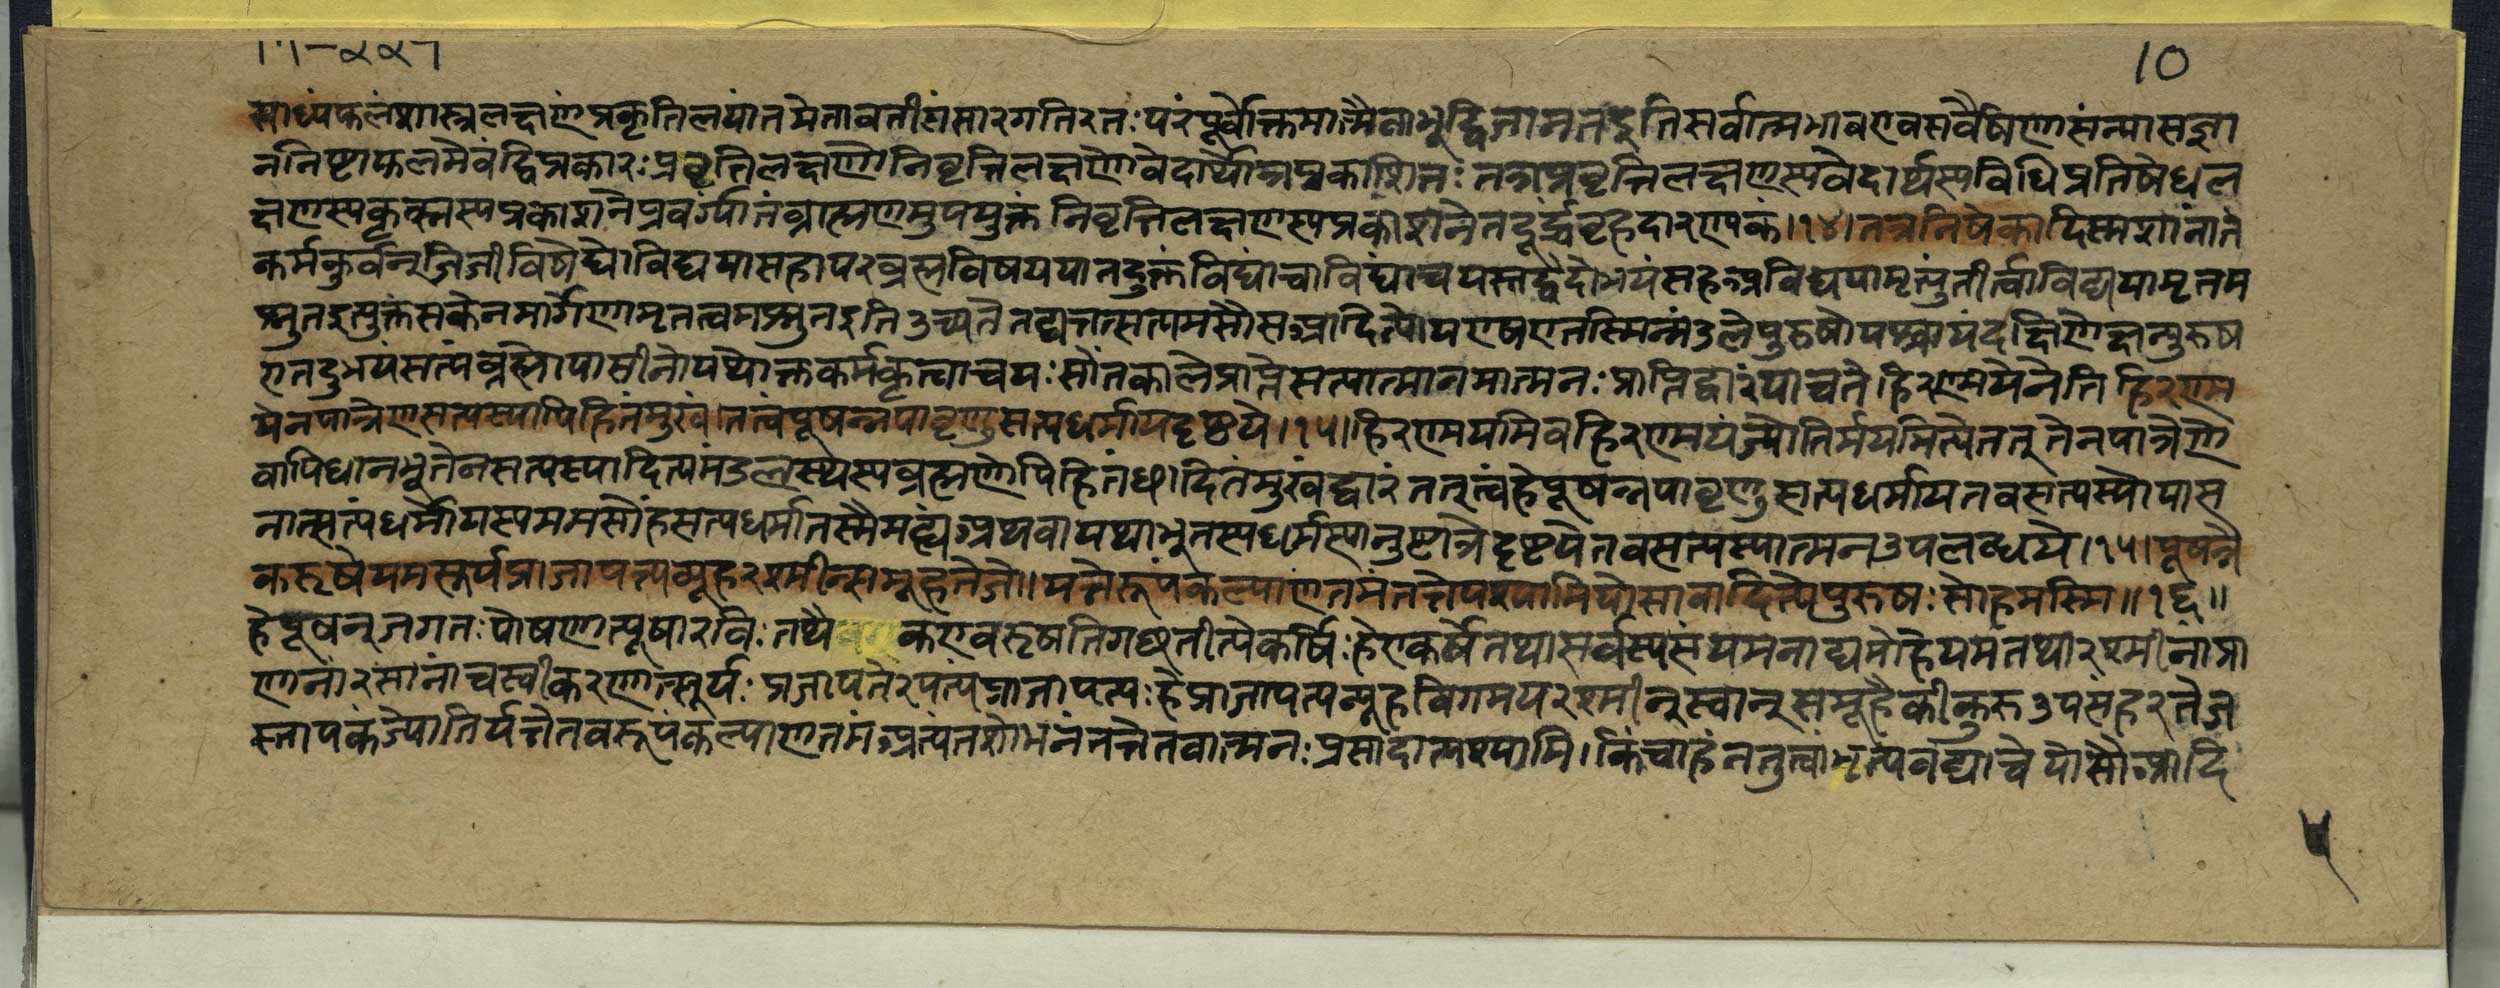 10
साध्यंफलंशास्त्रलक्षणंप्रकृतिलयांतमेतावतीसंसारगतिरतः परंपूर्वोक्तमात्मैवाभूद्विजानतइतिसर्वात्मभावएवसर्वैषणासंन्यासज्ञा
ननिष्ठाफलमेवंद्विप्रकारः प्रवृत्तिलक्षणोनिवृत्तिलक्षणोवेदार्थोत्रप्रकाशितः तत्रप्रवृत्तिलक्षणस्यवेदार्थस्यविधिप्रतिषेधल
क्षणस्यकृत्स्नस्यप्रकाशनेप्रवर्ग्यांतंब्राह्मणमुपयुक्तं निवृत्तिलक्षणस्यप्रकाशनेतदूर्द्ध्वंबृहदारण्यकं।१४।तत्रनिषेकादिश्मशानांतं
कर्मकुर्वन्जिजीविषेद्योविद्ययासहापरब्रह्मविषययातदुक्तंविद्यांचाविद्यांचयस्तद्वेदोभयंसहअविद्ययामृत्युंतीर्त्वाविद्ययामृतम
श्नुतइत्युक्तंसकेनमार्गेणामृतत्वमश्नुतइतिउच्यतेतद्यत्तत्सत्यमसौसआदित्योयएषएतस्मिन्मंडलेपुरुषोयश्चायंदक्षिणेक्षन्पुरुष
एतदुभयंसत्यंब्रह्मोपासीनोयथोक्तकर्मकृत्वाचयः सोंतकालेप्राप्तेसत्यात्मानमात्मनः प्राप्तिद्वारंयाचते हिरण्मयेनेति हिरण्म
येनपात्रेणसत्यस्यापिहितंमुखं।तत्वंपूषन्नपावृणुसत्यधर्मायदृष्टये।१५।हिरण्मयमिवहिरण्मयंज्योतिर्मयमित्येतत् तेनपात्रेणे
वापिधानभूतेनसत्यस्यादित्यमंडलस्थस्यब्रह्मणोपिहितंछादितंमुखंद्वारं तत्त्वंहेपूषन्नपावृणुसत्यधर्मायतवसत्यस्योपास
नात्सत्यंधर्मोयस्यममसोहंसत्यधर्मातस्मैमह्यंअथवायथाभूतस्यधर्मस्यानुष्ठात्रेदृष्टयेतवसत्यस्यात्मनउपलब्धये।१५।पूषन्ने
कऋषेयमसूर्यप्राजापत्यव्यूहरश्मीन्समूहतेजो।यत्तेरूपंकल्याणतमंतत्तेपश्यामियोसावादित्येपुरुषः सोहमस्मि॥१६॥
हेपूषन्जगतः पोषणात्पूषारविः तथै कएवऋषतिगछतीत्येकर्षिः हेएकर्षेतथासर्वस्यसंयमनाद्यमोहेयमतथारश्मीनांप्रा
णानांरसानांचस्वीकरणात्सूर्यः प्रजापतेरपत्यंप्राजापत्यः हेप्राजापत्यव्यूहविगमयरश्मीन्स्वान्समूहैकीकुरुउपसंहरतेज
स्तापकंज्योतिर्यत्तेतवरूपंकल्याणतमंअत्यंतशोभनंतत्तेतवात्मनः प्रसादात्पश्यामि।किंचाहंनतुत्वांभृत्यवद्याचेयोसौआदि
५